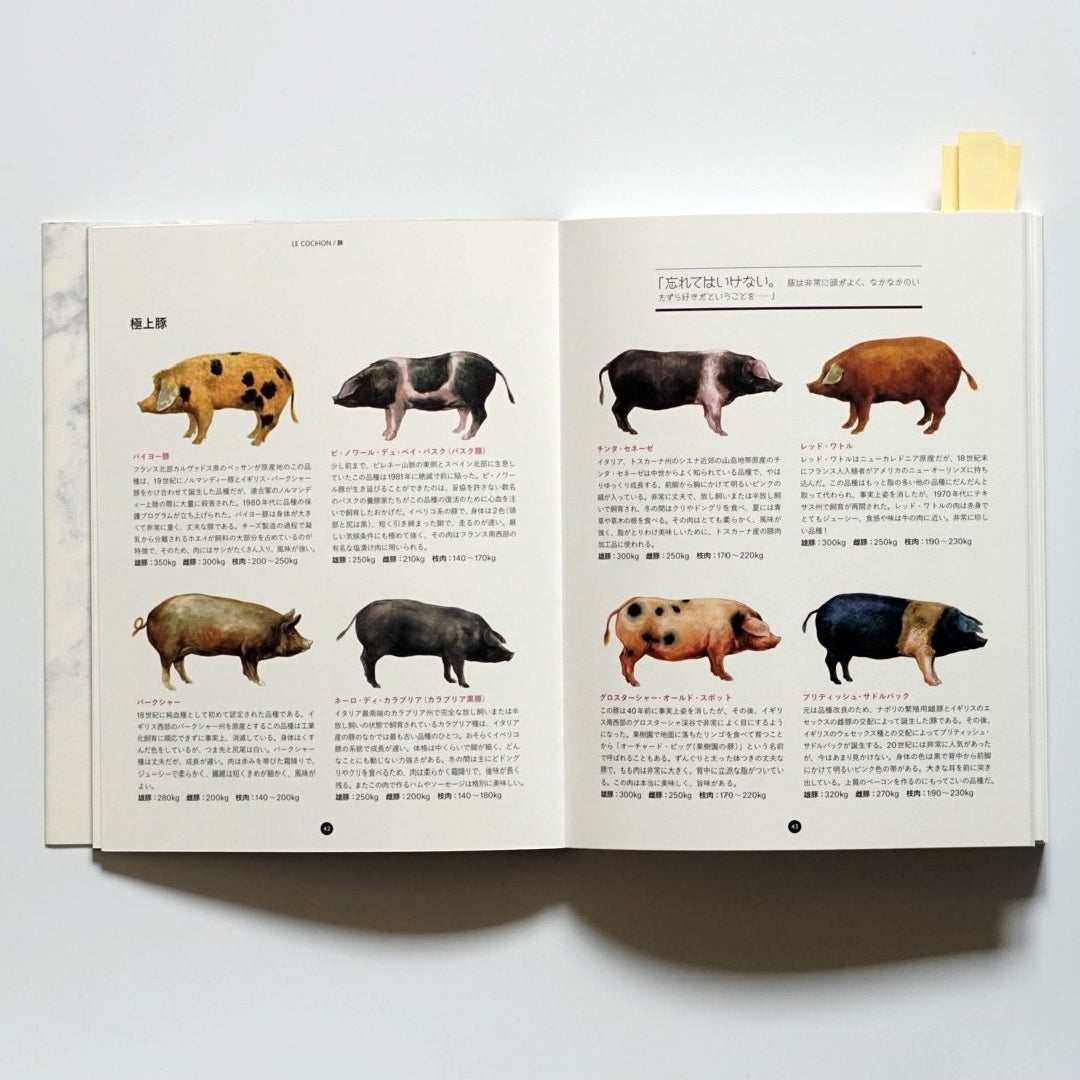 LE COCHON / 豚
極上豚
バイヨー豚
フランス北部カルヴァドス県のベッサンが原産地のこの品
種は、19世紀にノルマンディー豚とイギリス・バークシャー
豚をかけ合わせて誕生した品種だが、連合軍のノルマンデ
ィー上陸の際に大量に殺害された。1980年代に品種の保
護プログラムが立ち上げられた。バイヨー豚は身体が大き
くて非常に重く、丈夫な豚である。チーズ製造の過程で凝
乳から分離されるホエイが飼料の大部分を占めているのが
特徴で、そのため、肉にはサシがたくさん入り、風味が強い。
雄豚:350kg 雌豚:300kg 枝肉:200〜250kg
ピ・ノワール・デュ・ペイ・バスク(バスク豚)
少し前まで、ピレネー山脈の東側とスペイン北部に生息し
ていたこの品種は1981年に絶滅寸前に陥った。ピ・ノワー
ル豚が生き延びることができたのは、妥協を許さない数名
のバスクの養豚家たちがこの品種の復活のために心血を注
いで飼育したおかげだ。イベリコ系の豚で、身体は2色(頭
部と尻は黒)、短く引き締まった脚で、走るのが速い。厳
しい気候条件にも極めて強く、その肉はフランス南西部の
有名な塩漬け肉に用いられる。
雄豚:250kg 雌豚:210kg 枝肉:140〜170kg
バークシャー
18世紀に純血種として初めて認定された品種である。イ
ギリス西部のバークシャー州を原産とするこの品種は工業
化飼育に順応できずに事実上、消滅している。身体はくす
んだ色をしているが、つま先と尻尾は白い。バークシャー
種は丈夫だが、成長が遅い。肉は赤みを帯びた霜降りで、
ジューシーで柔らかく、繊維は短くきめが細かく、風味が
よい。
雄豚:280kg 雌豚:200kg 枝肉:140〜200kg
ネーロ・ディ・カラブリア(カラブリア黒豚)
イタリア最南端のカラブリア州で完全な放し飼いまたは半
放し飼いの状態で飼育されているカラブリア種は、イタリア
産の豚のなかでは最も古い品種のひとつ。おそらくイベリコ
豚の系統で成長が遅い。体格は中くらいで脚が細く、どん
なことにも動じない力強さがある。冬の間は主にとドング
リやクリを食べるため、肉は柔らかく霜降りで、後味が長く
残る。またこの肉で作るハムやソーセージは格別に美味しい。
雄豚:250kg 雌豚:200kg 枝肉:140〜180kg
42
「忘れてはいけない。 豚は非常に頭がよく、なかなかのい
たずら好きだということを……」
チンタ・セネーゼ
イタリア、トスカーナ州のシエナ近郊の山岳地帯原産のチ
ンタ・セネーゼは中世からよく知られている品種で、やは
りゆっくり成長する。前脚から胸にかけて明るいピンクの
縞が入っている。非常に丈夫で、放し飼いまたは半放し飼
いで飼育され、冬の間はクリやドングリを食べ、夏には青
草や草木の根を食べる。その肉はとても柔らかく、風味が
強く、脂がとりわけ美味しいために、トスカーナ産の豚肉
加工品に使われる。
雄豚:300kg 雌豚:250kg 枝肉:170〜220kg
レッド・ワトル
レッド・ワトルはニューカレドニア原産だが、18世紀末
にフランス人入植者がアメリカのニューオーリンズに持ち
込んだ。この品種はもっと脂の多い他の品種にだんだんと
取って代わられ、事実上姿を消したが、1970年代にテキ
サス州で飼育が再開された。レッド・ワトルの肉は赤身で
とてもジューシー、食感や味は牛の肉に近い。非常に珍し
い品種!
雄豚:300kg 雌豚:250kg 枝肉:190〜230kg
グロスターシャー・オールド・スポット
この豚は40年前に事実上姿を消したが、その後、イギリ
ス南西部のグロスターシャ渓谷で非常によく目にするよう
になった。果樹園で地面に落ちたリンゴを食べて育つこと
から「オーチャード・ピッグ(果樹園の豚)」という名前
で呼ばれることもある。ずんぐりと太った体つきの丈夫な
豚で、もも肉は非常に大きく、背中に立派な脂がついてい
る。この肉は本当に美味しく、旨味がある。
雄豚:300kg 雌豚:250kg 枝肉:170〜220kg
ブリティッシュ・サドルバック
元は品種改良のため、ナポリの繁殖用雄豚とイギリスのエ
セックスの雌豚の交配によって誕生した豚である。その後、
イギリスのウェセックス種との交配によってブリティッシュ・
サドルバックが誕生する。20世紀には非常に人気があった
が、今はあまり見かけない。身体の色は黒で背中から前脚
にかけて明るいピンク色の帯がある。大きな耳を前に突き
出している。上質のベーコンを作るのにもってこいの品種だ。
雄豚:320kg 雌豚:270kg 枝肉:190〜230kg
43